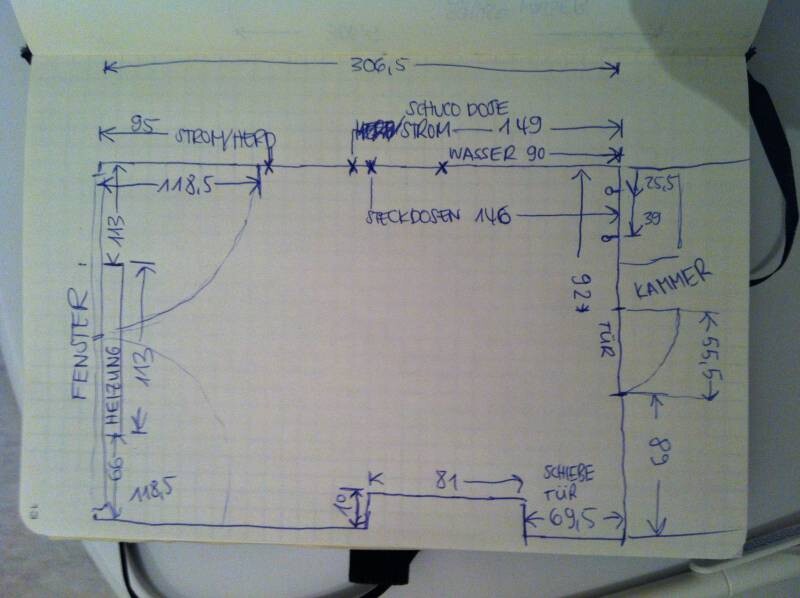 306,5
SCHUCO DOSE
95
STROM/HERD
/STROM
149
WASSER 90
118,5
25,5
STECKDOSEN 146
39
K 113
KAMMER
92
FENSTER
HEIZUNG
113
TÜR
55,5
66
118,5
K
81
10
SCHIEBE
TÜR
69,5
89